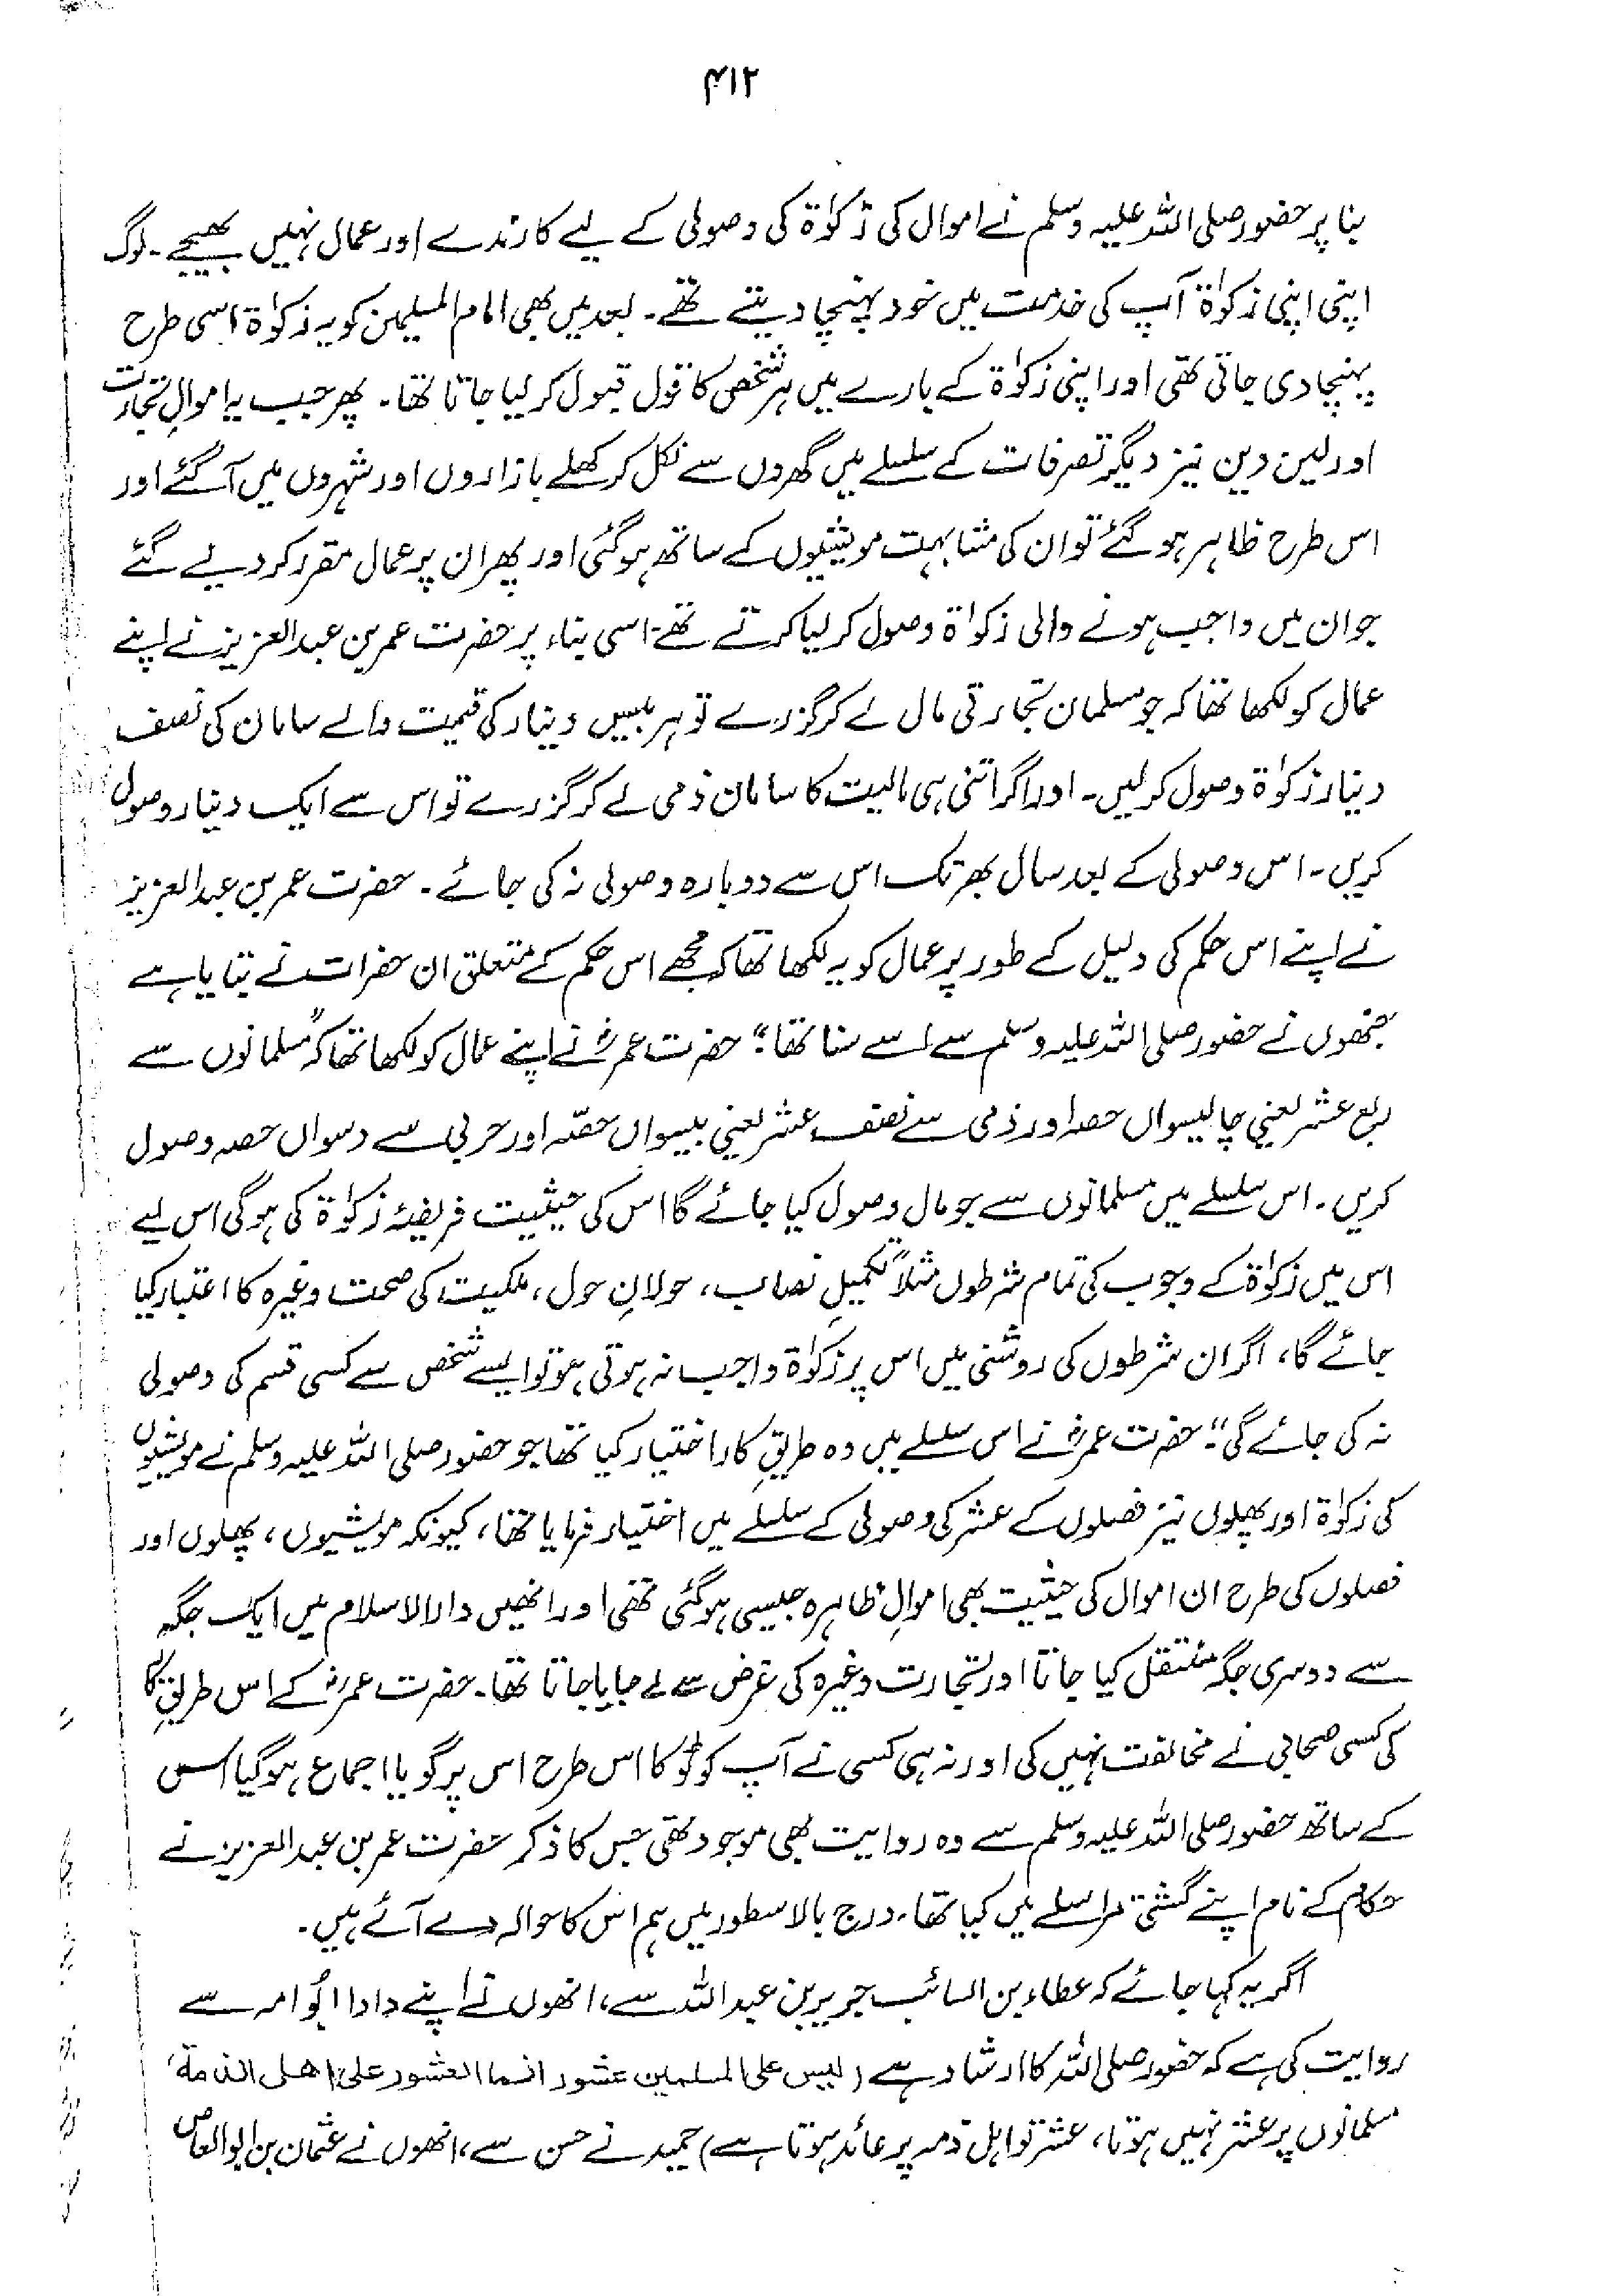 ۴۱۲
بنا پر حضور صلی اللہ علیہ وسلم نے اموال کی زکوٰۃ کی وصولی کے لیے کارندے اور عمال نہیں بھیجے۔ لوگ
اپنی اپنی زکوٰۃ آپ کی خدمت میں خود پہنچا دیتے تھے۔ بعد میں بھی امام المسلمین کو یہ زکوٰۃ اسی طرح
پہنچا دی جاتی تھی اور اپنی زکوٰۃ کے بارے میں ہر شخص کا قول قبول کر لیا جاتا تھا۔ پھر جب یہ اموالِ تجارت
اور لین دین نیز دیگر تصرفات کے سلسلے میں گھروں سے نکل کر کھلے بازاروں اور شہروں میں آ گئے اور
اس طرح ظاہر ہو گئے تو ان کی مشابہت مویشیوں کے ساتھ ہو گئی اور پھر ان پر عمال مقرر کر دیے گئے
جو ان میں واجب ہونے والی زکوٰۃ وصول کر لیا کرتے تھے اسی بناء پر حضرت عمر بن عبدالعزیز نے اپنے
عمال کو لکھا تھا کہ جو مسلمان تجارتی مال لے کر گزرے تو ہر بیس دینار کی قیمت والے سامان کی نصف
دینار زکوٰۃ وصول کر لیں۔ اور اگر اتنی ہی مالیت کا سامان ذمی لے کر گزرے تو اس سے ایک دینار وصول
کریں۔ اس وصولی کے بعد سال بھر تک اس سے دوبارہ وصولی نہ کی جائے۔ حضرت عمر بن عبدالعزیز
نے اپنے اس حکم کی دلیل کے طور پر عمال کو یہ لکھا تھا کہ مجھے اس حکم کے متعلق ان حضرات نے بتایا ہے
جنھوں نے حضور صلی اللہ علیہ وسلم سے اسے سنا تھا"؛ حضرت عمرؓ نے اپنے عمال کو لکھا تھا کہ "مسلمانوں سے
ربع عشر یعنی چالیسواں حصہ اور ذمی سے نصف عشر یعنی بیسواں حصّہ اور حربی سے دسواں حصہ وصول
کریں۔ اس سلسلے میں مسلمانوں سے جو مال وصول کیا جائے گا اس کی حیثیت فریضۂ زکوٰۃ کی ہو گی اس لیے
اس میں زکوٰۃ کے وجوب کی تمام شرطوں مثلاً تکمیلِ نصاب، حولانِ حول، ملکیت کی صحت وغیرہ کا اعتبار کیا
جائے گا، اگر ان شرطوں کی روشنی میں اس پر زکوٰۃ واجب نہ ہوتی ہو تو ایسے شخص سے کسی قسم کی وصولی
نہ کی جائے گی"؛ حضرت عمرؓ نے اس سلسلے میں وہ طریقِ کار اختیار کیا تھا جو حضور صلی اللہ علیہ وسلم نے مویشیوں
کی زکوٰۃ اور پھلوں نیز فصلوں کے عشر کی وصولی کے سلسلے میں اختیار فرمایا تھا، کیونکہ مویشیوں، پھلوں اور
فصلوں کی طرح ان اموال کی حیثیت بھی اموالِ ظاہرہ جیسی ہو گئی تھی اور انھیں دارالاسلام میں ایک جگہ
سے دوسری جگہ منتقل کیا جاتا اور تجارت وغیرہ کی غرض سے لے جایا جاتا تھا۔ حضرت عمرؓ کے اس طریقِ کار
کی کسی صحابی نے مخالفت نہیں کی اور نہ ہی کسی نے آپ کو ٹوکا اس طرح اس پر گویا اجماع ہو گیا اس
کے ساتھ حضور صلی اللہ علیہ وسلم سے وہ روایت بھی موجود تھی جس کا ذکر حضرت عمر بن عبدالعزیز نے
حکام کے نام اپنے گشتی مراسلے میں کیا تھا۔ درج بالا سطور میں ہم اس کا حوالہ دے آئے ہیں۔
اگر یہ کہا جائے کہ عطاء بن السائب جریر بن عبداللہ سے، انھوں نے اپنے دادا ابوامہ سے
روایت کی ہے کہ حضور صلی اللہ کا ارشاد ہے (لیس علی المسلمین عشور انما العشور علی اھل الذمۃ،
مسلمانوں پر عشر نہیں ہوتا، عشر تو اہل ذمہ پر عائد ہوتا ہے) حمید نے حسن سے، انھوں نے عثمان بن ابوالعاص